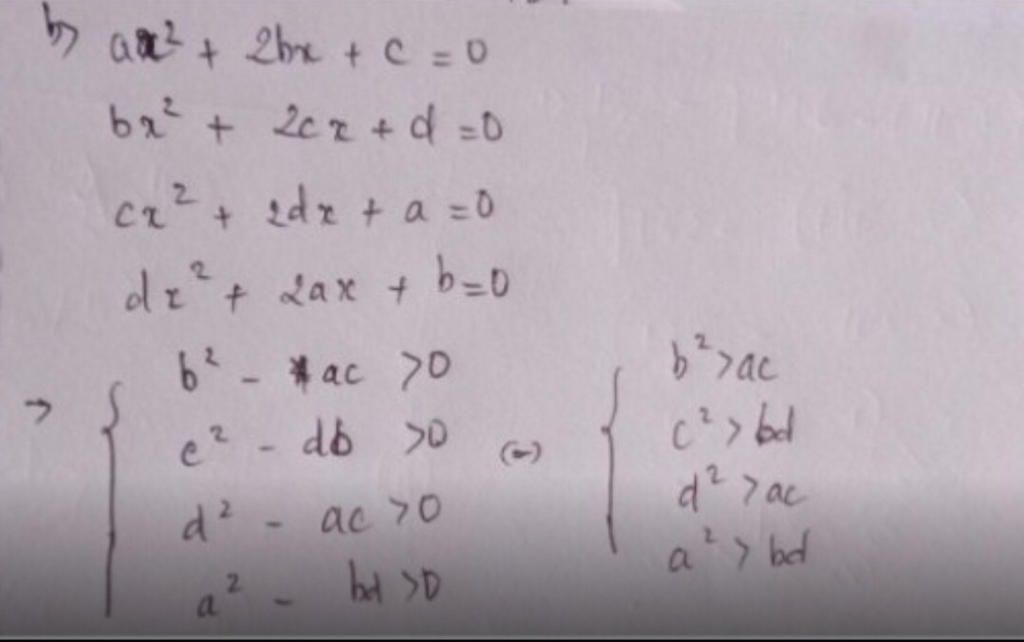 b) ax² + 2bx + c = 0
bx² + 2cx + d = 0
cx² + 2dx + a = 0
dx² + 2ax + b = 0
→ { b² - ac > 0
c² - db > 0
d² - ac > 0
a² - bd > 0
(=) { b² > ac
c² > bd
d² > ac
a² > bd